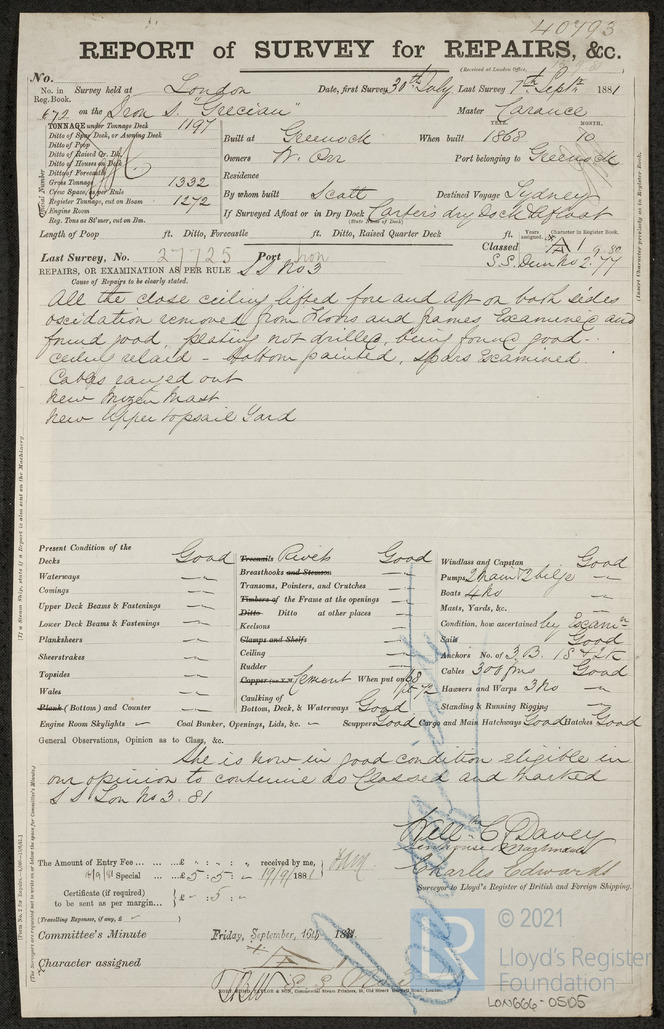 40793
REPORT of SURVEY for REPAIRS, &c.
(Received at London Office,
No.
No. in Reg. Book. Survey held at London Date, first Survey 30th July Last Survey 7th Septr 1881
672 on the Iron S. "Grecian" Master Larance
TONNAGE under Tonnage Deck 1197
Ditto of Spar Deck, or Awning Deck
Ditto of Poop
Ditto of Raised Qr. Dk.
Ditto of Houses on Deck
Ditto of Forecastle
Gross Tonnage 1332
Crew Space, as per Rule
Register Tonnage, cut on Beam 1272
Engine Room
Reg. Tons as St'mer, cut on Bm.
Official Number
Built at Greenock When built YEAR. 1868 MONTH. 10
Owners W. Orr Port belonging to Greenock
Residence
By whom built Scott Destined Voyage Sydney
If Surveyed Afloat or in Dry Dock Carters dry Dock & Afloat
(State Name of Dock)
Length of Poop ft. Ditto, Forecastle ft. Ditto, Raised Quarter Deck ft.
Years assigned. Character in Register Book.
Last Survey, No. 27725 Port Iron Classed A 1 9.80
S.S. Dun No 2. 77
REPAIRS, OR EXAMINATION AS PER RULE S S No 3
Cause of Repairs to be clearly stated.
All the close ceiling lifted fore and aft on both sides
oscidation removed from Floors and frames Examined and
found good, plating not drilled, being found good -
ceiling relaid - bottom painted, spars Examined
Cables ranged out
New Mizen Mast
New Upper topsail Yard
Present Condition of the
Decks Good
Waterways "
Comings "
Upper Deck Beams & Fastenings "
Lower Deck Beams & Fastenings "
Planksheers "
Sheerstrakes "
Topsides "
Wales "
Plank (Bottom) and Counter "
Engine Room Skylights "
Treenails Rivets Good
Breasthooks and Stemson "
Transoms, Pointers, and Crutches "
Timbers of the Frame at the openings "
Ditto Ditto at other places "
Keelsons "
Clamps and Shelfs "
Ceiling "
Rudder "
Copper (or Y.M.) Cement When put on 68
Caulking of Bottom, Deck, & Waterways Good
Coal Bunker, Openings, Lids, &c. " Scuppers Good
Windlass and Capstan Good
Pumps 2 main & 2 bilge "
Boats 4 No "
Masts, Yards, &c. "
Condition, how ascertained by Exam.n
Sails Good
Anchors No. of 3 B. 1 S & 2 K
Cables 300 fms Good
Hawsers and Warps 3 No "
Standing & Running Rigging "
Cargo and Main Hatchways Good Hatches Good
General Observations, Opinion as to Class, &c.
She is now in good condition eligible in
our opinion to continue as Classed and marked
S S Lon No 3. 81
Will. C. Davey
Charles Edwards
Surveyor to Lloyd's Register of British and Foreign Shipping.
The Amount of Entry Fee ... £ " : " : " received by me,
Special ... £ 5 : 5 : - 19/9/1881
Certificate (if required) to be sent as per margin... £ - : 5 : -
(Travelling Expenses, if any, £ - )
Committee's Minute Friday, September, 16th 1881.
Character assigned A 1
S S No 3
(If a Steam Ship, state if a Report is also sent on the Machinery.
(Insert Character precisely as in Register Book.
(The Surveyors are requested not to write on or below the space for Committee's Minute.)
© 2021
LR
Lloyd's Register
Foundation
LON666-0505